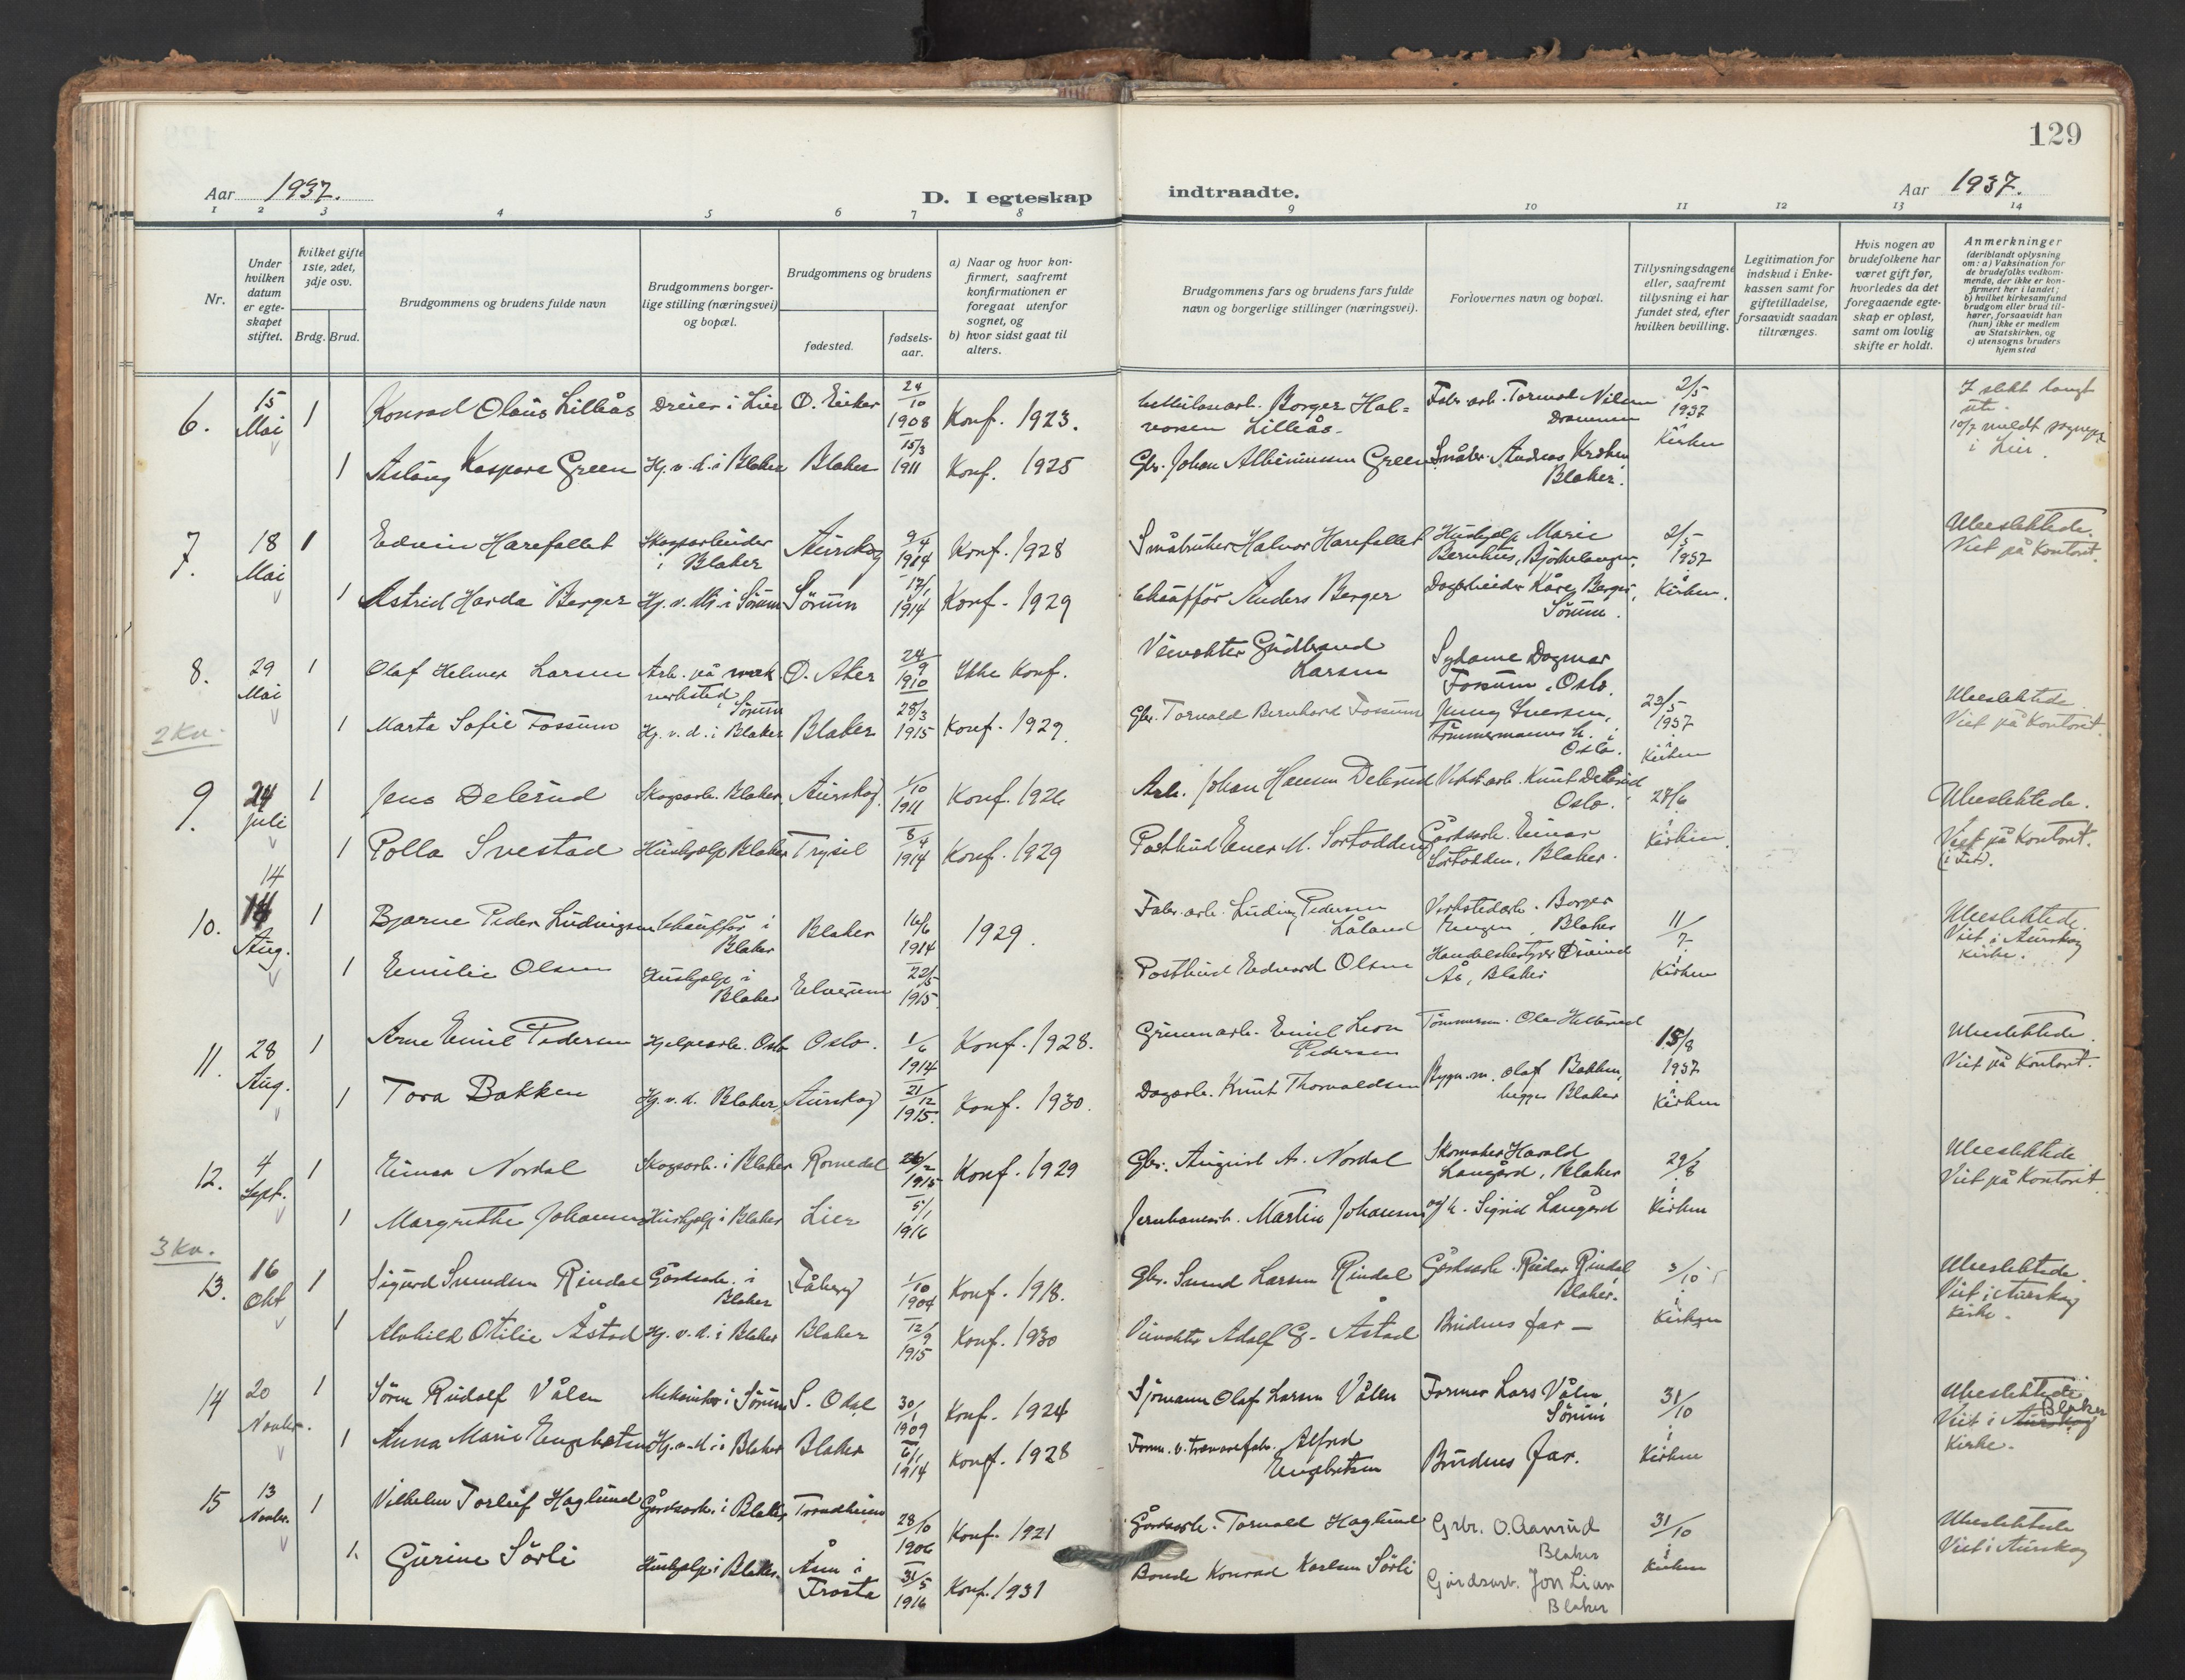 129
Aar 1937.
D. I egteskap indtraadte.
Aar 1937.
1 2 3 4 5 6 7 8 9 10 11 12 13 14
Nr.
Under hvilken datum er egteskapet stiftet.
Hvilket gifte 1ste, 2det, 3dje osv.
Brdg. Brud.
Brudgommens og brudens fulde navn
Brudgommens borgerlige stilling (næringsvei) og bopæl.
Brudgommens og brudens
fødested.
fødselsaar.
a) Naar og hvor konfirmert, saafremt konfirmationen er foregaat utenfor sognet, og
b) hvor sidst gaat til alters.
Brudgommens fars og brudens fars fulde navn og borgerlige stillinger (næringsvei).
Forlovernes navn og bopæl.
Tillysningsdagene eller, saafremt tillysning ei har fundet sted, efter hvilken bevilling.
Legitimation for indskud i Enkekassen samt for giftetilladelse, forsaavidt saadan tiltrænges.
Hvis nogen av brudefolkene har været gift før, hvorledes da det foregaaende egteskap er opløst, samt om lovlig skifte er holdt.
Anmerkninger (deriblandt oplysning om: a) Vaksination for de brudefolks vedkommende, der ikke er konfirmert her i landet; b) hvilket kirkesamfund brudgom eller brud tilhører, forsaavidt han (hun) ikke er medlem av Statskirken, og c) utensogns bruders hjemsted
6. 15 Mai 1 Konrad Olaus Lilleås Dreier i Lier Ø. Eiker 24/10 1908 Konf. 1923. Borger Halvorsen Lilleås. Fabr. arb. Tormod Nilsen Drammen 2/5 1937 i Kirken I slekt langt ute. 10/7 meldt sognepr. i Lier.
1 Aslaug Kaspara Green Hj. v. d. i Blaker Blaker 15/3 1911 Konf. 1925 Gbr. Johan Albinussen Green Småbr. Andreas Kroken Blaker.
7. 18 Mai 1 Edvin Harefallet Skogsarbeider i Blaker Aurskog 9/4 1914 Konf. 1928 Småbruker Halvor Harefallet Hushjelp Marie Bernhus, Bjørkelangen. 2/5 1937 i Kirken. Ubeslektede. Viet på Kontoret.
1 Astrid Harda Berger Hj. v. M. i Sørum Sørum 17/1 1914 Konf. 1929 Chauffør Anders Berger Dagarbeider Kåre Berger, Sørum.
8. 29 Mai 1 Olaf Helmer Larsen Arb. på mek verksted i Sørum Ø. Aker 24/9 1910 Ikke Konf. Veivokter Gudbrand Larsen Sydame Dagmar Fossum, Oslo. 23/5 1937 i Kirken Ubeslektede. Viet på Kontoret.
1 Marta Sofie Fossum Hj. v. d. i Blaker Blaker 28/3 1915 Konf. 1929. Gbr. Torvald Bernhard Fossum Jenny Iversen, Tømmermanns h. i Oslo.
2 Kv.
9. 24 Juli 1 Jens Delerud Skogsarb. Blaker Aurskog. 1/10 1911 Konf. 1926 Arb. Johan Hansen Delerud Verkst. arb. Knut Delerud Oslo. 27/6 i Kirken. Ubeslektede. Viet på Kontoret. (i Fet).
1 Polla Svestad Hushjelp Blaker Trysil 8/4 1914 Konf. 1929 Postbud Ener M. Sortodden Gårdsarb. Einar Sortodden, Blaker.
10. 14 Aug. 1 Bjarne Peder Ludvigsen Chauffør i Blaker Blaker 16/6 1914 1929. Fabr. arb. Ludvig Pedersen Låland Verkstedarb. Borger Engen, Blaker 11/7 i Kirken Ubeslektede. Viet i Aurskog Kirke.
1 Emilie Olsen Hushjelp i Blaker Elverum 22/5 1915. Postbud Edvard Olsen Handelsbestyrer Øivind Aa, Blaker
11. 28 Aug. 1 Arne Emil Pedersen Hjelpearb. Oslo Oslo. 1/6 1914 Konf. 1928. Emil Leon Pedersen Tømmerm. Ole Hellerud 15/8 1937 i Kirken Ubeslektede. Viet på Kontoret.
1 Tora Bakken Hj. v. d. Blaker, Aurskog 21/12 1915. Konf. 1930. Dagarb. Knut Thorvaldsen Bygn. m. Olaf Bakken, begge Blaker
12. 4 Sept. 1 Einar Nordal Skogsarb. i Blaker Romedal 26/2 1915 Konf. 1929 Gbr. August A. Nordal Skomaker Harald Langård, Blaker 29/8 i Kirken Ubeslektede Viet på Kontoret.
1 Margrethe Johansen Hushjelp i Blaker Lier 5/1 1916 Jernbanearb. Martin Johansen og h. Sigrid Langård
3 Kv.
13. 16 Okt 1 Sigurd Simensen Rindal Gårdsarb. i Blaker Fåberg 1/10 1904 Konf. 1918. Gbr. Larsen Rindal Gårdsarb. Reidar Rindal Blaker. 3/10 i Kirken Ubeslektede. Viet i Aurskog Kirke.
1 Alvhild Otilie Åstad Hj. v. d. i Blaker Blaker 12/9 1915 Konf. 1930 Veivokter Adolf G. Åstad Brudens far —
14 20 Novbr. 1 Søren Rudolf Vålen Mekaniker i Sørum S. Odal 30/1 1909 Konf. 1924 Sjømann Olaf Larsen Vålen Farmer Lars Vålen, Sørum 31/10 i Kirken Ubeslektede. Viet i Aurskog Blaker Kirke.
1 Anna Marie Engebretsen Hj. v. d. i Blaker Blaker 6/1 1914 Konf. 1928 Form. v. trævarefabr. Alfred Engebretsen Brudens far.
15 13 Novbr. 1 Vilhelm Torleif Haglund Gårdsarb. i Blaker Trondheim 28/10 1906 Konf. 1921 Gårdsarb. Torvald Haglund Grbr. O. Aamrud Blaker 31/10 i Kirken Ubeslektede Viet i Aurskog
1. Gurine Sørli Hushjelp i Blaker. Åsen i Frosta 31/5 1916 Konf. 1931 Bonde Konrad Karlsen Sørli Gårdsarb. Jon Lian Blaker